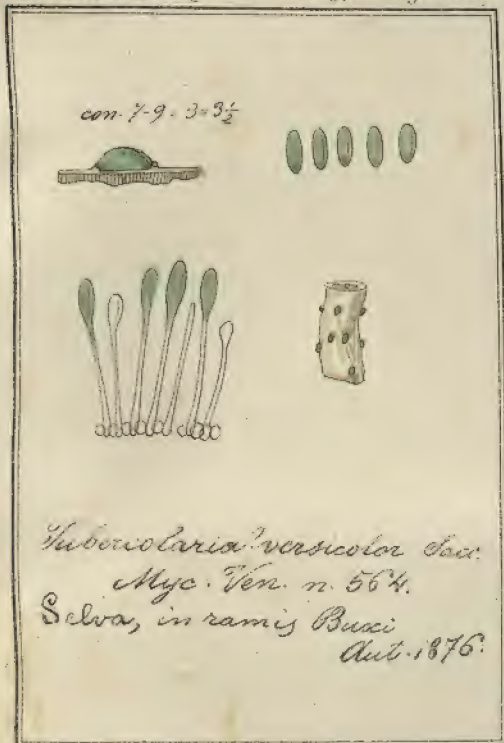 con. 7-9 = 3=3½
Tubercolaria? versicolor Sacc.
Myc. Ven. n. 564.
Selva, in ramis Buxi
Aut. 1876.